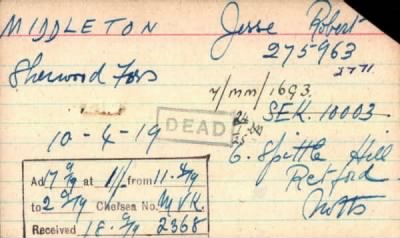 MIDDLETON Jesse Robert
275963
2771
Sherwood Fors
7/MM/1693
SEK. 10003
DEAD
10-4-19
6. Spittle Hill
Retford
Notts
Ad 17 9/19 at 1/- from 11. 4/19
to 2 9/19 Chelsea No. MVK.
Received 18. 9/19 2368